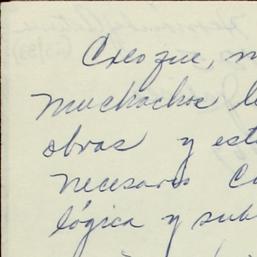 Creo que, m
muchachos l
obras y est
necesario c
lógica y sub